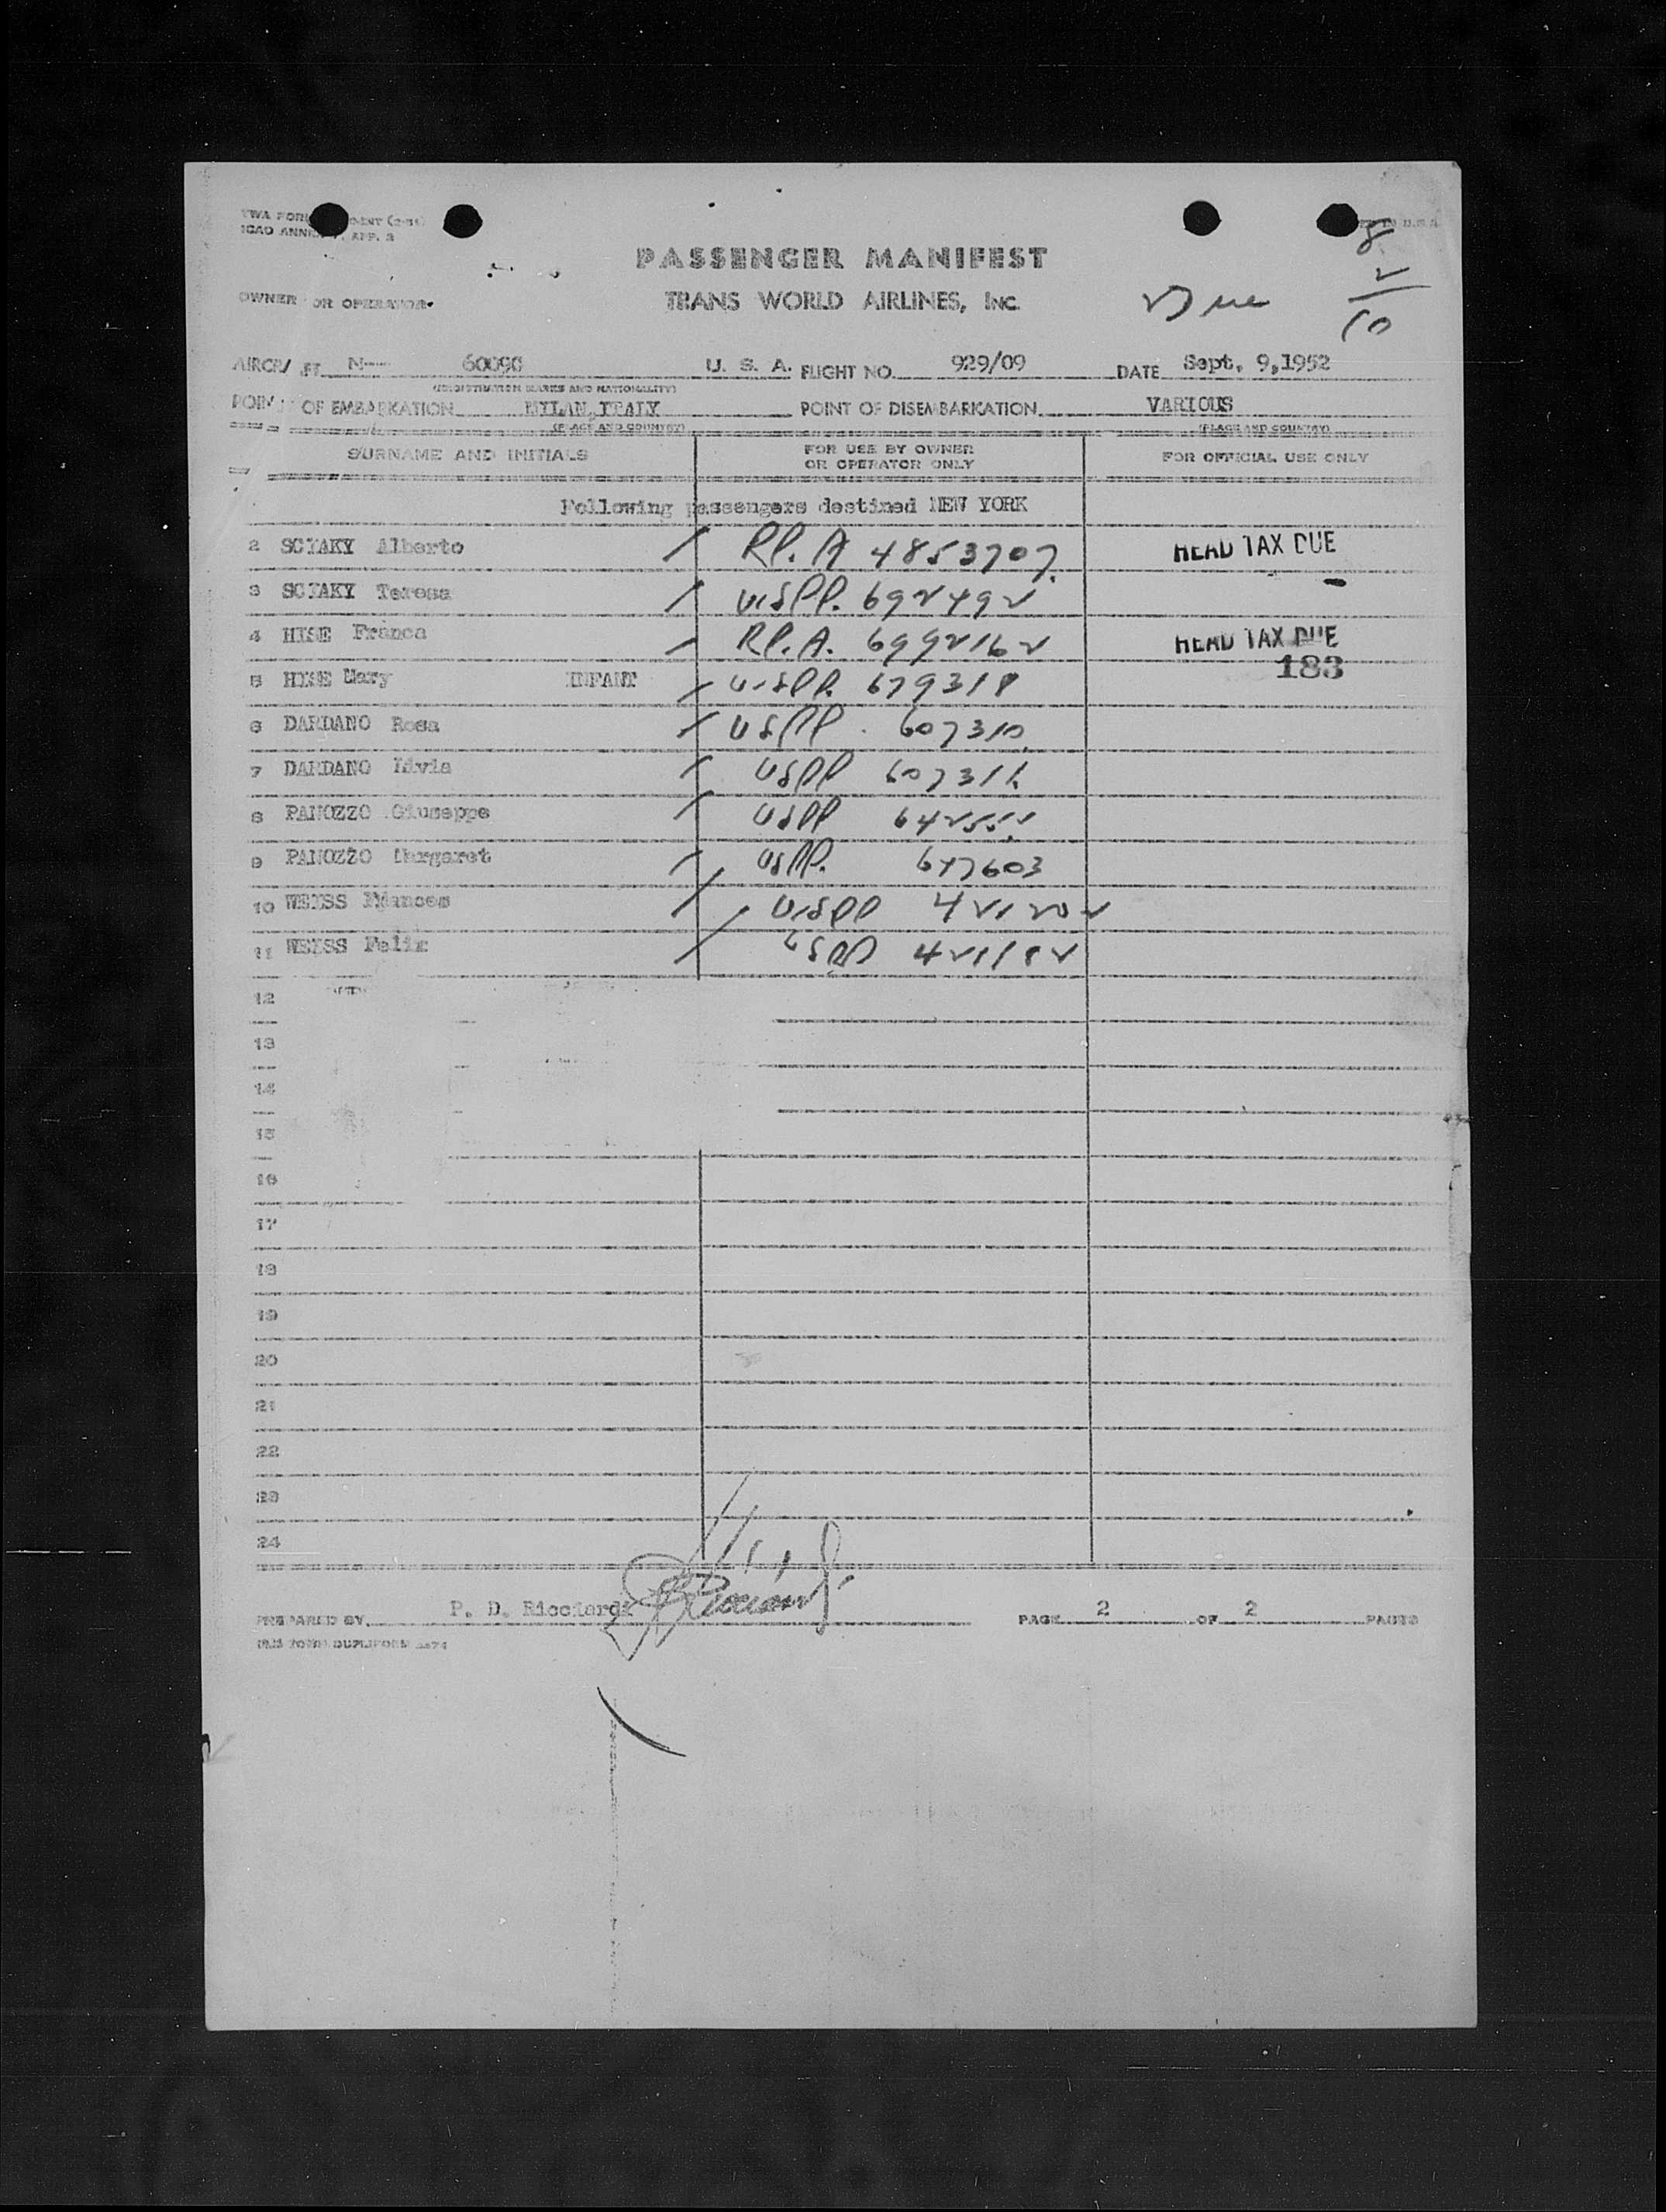 TWA FORM
ICAO ANNEX APP. 3
IN U.S.A
8
2
10
PASSENGER MANIFEST
OWNER OR OPERATOR
TRANS WORLD AIRLINES, INC.
Due
AIRCRAFT N— 6009C U. S. A. FLIGHT NO. 929/09 DATE Sept. 9,1952
(REGISTRATION MARKS AND NATIONALITY)
POINT OF EMBARKATION MILAN, ITALY POINT OF DISEMBARKATION VARIOUS
(PLACE AND COUNTRY) (PLACE AND COUNTRY)
SURNAME AND INITIALS FOR USE BY OWNER OR OPERATOR ONLY FOR OFFICIAL USE ONLY
Following passengers destined NEW YORK
2 SCIAKY Alberto / RP. A 4853707 HEAD TAX DUE
3 SCIAKY Teresa / USPP. 692492
4 HISE Franca / RP. A. 6992162 HEAD TAX DUE
183
5 HISE Mary INFANT / USPP. 679318
6 DARDANO Rosa / USPP. 607310
7 DARDANO Livia / USPP 607311
8 PANOZZO Giuseppe / USPP
9 PANOZZO Margaret / USPP. 647603
10 WEISS Frances / USPP 421202
11 WEISS Felix / USPP 421182
12
13
14
15
16
17
18
19
20
21
22
23
24
PREPARED BY P. D. Ricciardi PAGE 2 OF 2 PAGES